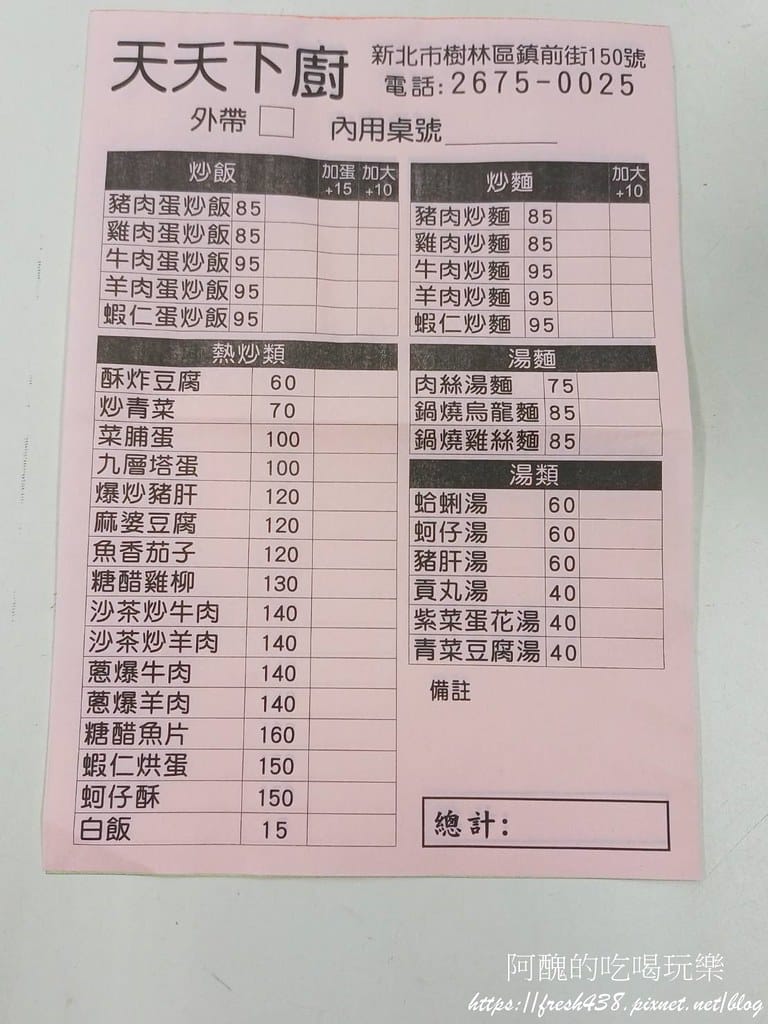 天天下廚
新北市樹林區鎮前街150號
電話:2675-0025
外帶 內用桌號
炒飯 加蛋+15 加大+10
豬肉蛋炒飯 85
雞肉蛋炒飯 85
牛肉蛋炒飯 95
羊肉蛋炒飯 95
蝦仁蛋炒飯 95
熱炒類
酥炸豆腐 60
炒青菜 70
菜脯蛋 100
九層塔蛋 100
爆炒豬肝 120
麻婆豆腐 120
魚香茄子 120
糖醋雞柳 130
沙茶炒牛肉 140
沙茶炒羊肉 140
蔥爆牛肉 140
蔥爆羊肉 140
糖醋魚片 160
蝦仁烘蛋 150
蚵仔酥 150
白飯 15
炒麵 加大+10
豬肉炒麵 85
雞肉炒麵 85
牛肉炒麵 95
羊肉炒麵 95
蝦仁炒麵 95
湯麵
肉絲湯麵 75
鍋燒烏龍麵 85
鍋燒雞絲麵 85
湯類
蛤蜊湯 60
蚵仔湯 60
豬肝湯 60
貢丸湯 40
紫菜蛋花湯 40
青菜豆腐湯 40
備註
總計:
阿醜的吃喝玩樂
https://fresh438.pixnet.net/blog